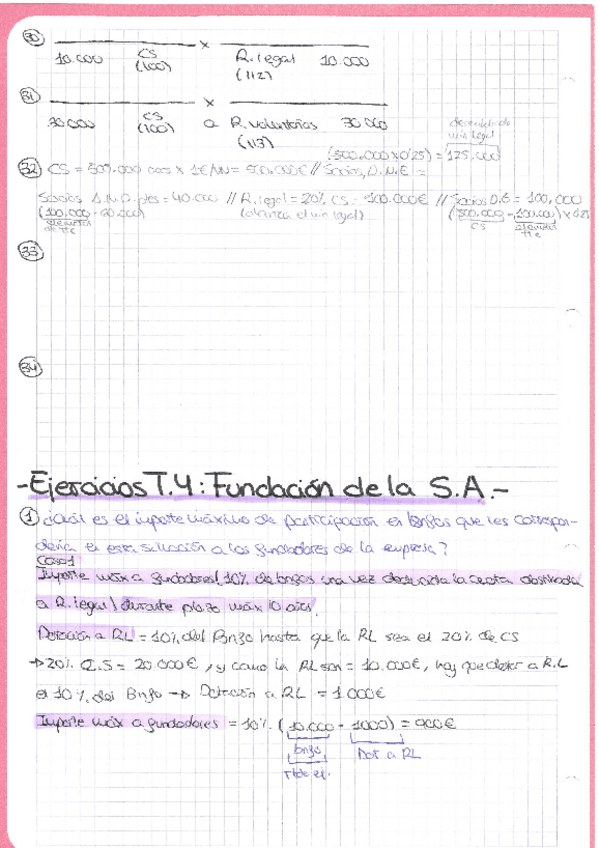 30 x
10.000 CS (100) R. legal (112) 10.000
31 x
30.000 CS (100) a R. voluntarias (113) 30.000
(500.000 x 0'25) = 125.000
32 CS = 500.000 x 1€/VN = 500.000€ // Socios, D.N.E =
Socios D.N.D. ptes = 40.000 // R. legal = 20% CS = 100.000€ // Socios D.E = 100,000
(100.000 - 60.000) (alcanza el min legal) (500.000 - 100.000) x 0'25
CS
33
34
-Ejercicios T.4: Fundación de la S.A.-
1 ¿Cuál es el importe máximo de participación en bnfos que les correspon-
dería en esta situación a los fundadores de la empresa?
Caso 1
Importe máx a fundadores! 10% de bnfos una vez deducida la cuota destinada
a R. legal \ durante plazo máx 10 años.
Dotación a RL = 10% del Bnfo hasta que la RL sea el 20% de CS
→ 20% C.S = 20.000€, y como la RL son = 10.000€, hay que dotar a R.L
el 10% del Bnfo → Dotación a RL = 1.000€
Importe máx a fundadores = 10% (10.000 - 1000) = 900€
Bnfo Dot a RL